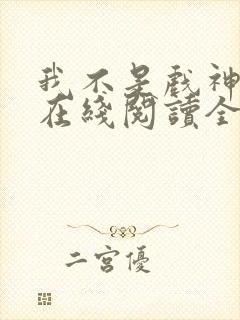 我不是戲神
在綫閱讀全
二宮優